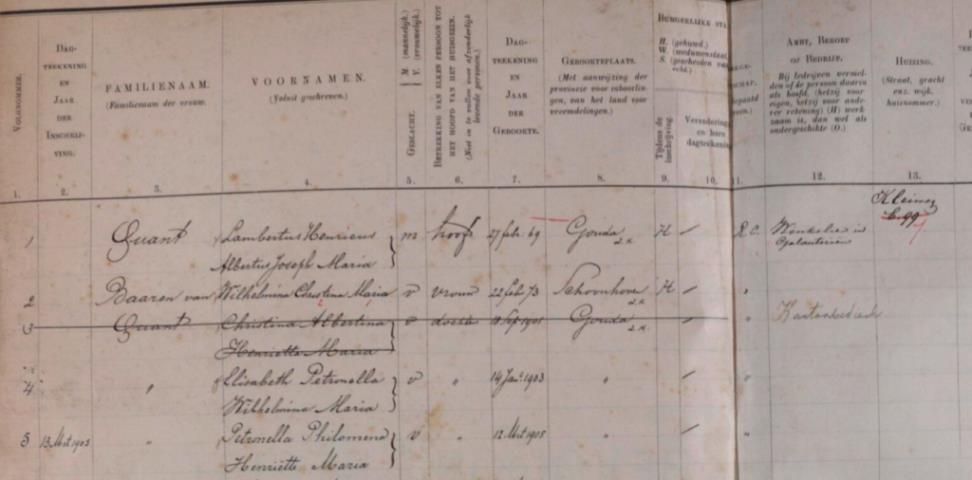 VOLGNOMMER.
DAG-
TEEKENING
EN
JAAR
DER
INSCHRIJ-
VING.
FAMILIENAAM.
(Familienaam der vrouw.
VOORNAMEN.
(Voluit geschreven.)
GESLACHT.
M (mannelijk.)
V. (vrouwelijk.)
BETREKKING VAN ELKEN PERSOON TOT
HET HOOFD VAN HET HUISGEZIN.
(Niet in te vullen voor afzonderlijk
levende personen.)
DAG-
TEEKENING
EN
JAAR
DER
GEBOORTE.
GEBOORTEPLAATS.
(Met aanwijzing der
provincie voor inboorlin-
gen, van het land voor
vreemdelingen.)
BURGERLIJKE STA
H. (gehuwd.)
S. (gescheiden van
echt.)
Tijdens de
inschrijving.
Verandering
en hare
dagteekening
AMBT, BEROEP
OF BEDRIJF.
Bij bedrijven vermel-
den of de persoon daarin
als hoofd, (hetzij voor
eigen, hetzij voor ande-
rer rekening) (H) werk-
zaam is, dan wel als
ondergeschikte (O.)
HUIZING.
(Straat, gracht
enz. wijk,
huisnommer.)
1. 2. 3. 4. 5. 6. 7. 8. 9. 10. 11. 12. 13.
1 Quant Lambertus Henricus m hoofd 27 febr. 69 Gouda Z.H. H R.C. Winkelier in
Albertus Joseph Maria Galanterien
2 Baaren van Wilhelmina Christina Maria v vrouw 22 feb 73 Schoonhoven Z.H. H "
3 Quant Christina Albertina v Gouda Z.H. "
Henrietta Maria
4 " Elisabeth Petronella v " 14 Jan. 1903 " "
Wilhelmina Maria
5 13 Mrt 1905 " Petronella Philomena v " 12 Mrt 1905 "
Henriëtte Maria